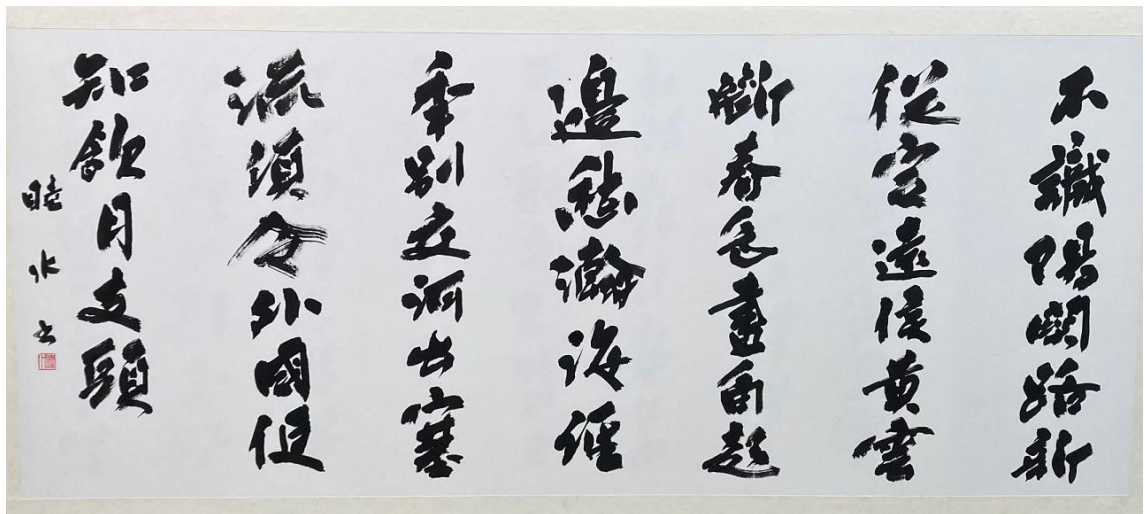 不識陽關路新
從定遠侯黃雲
斷春色畫角起
邊愁瀚海經
年別交河出塞
流須令外國使
知飲月支頭
睦水書